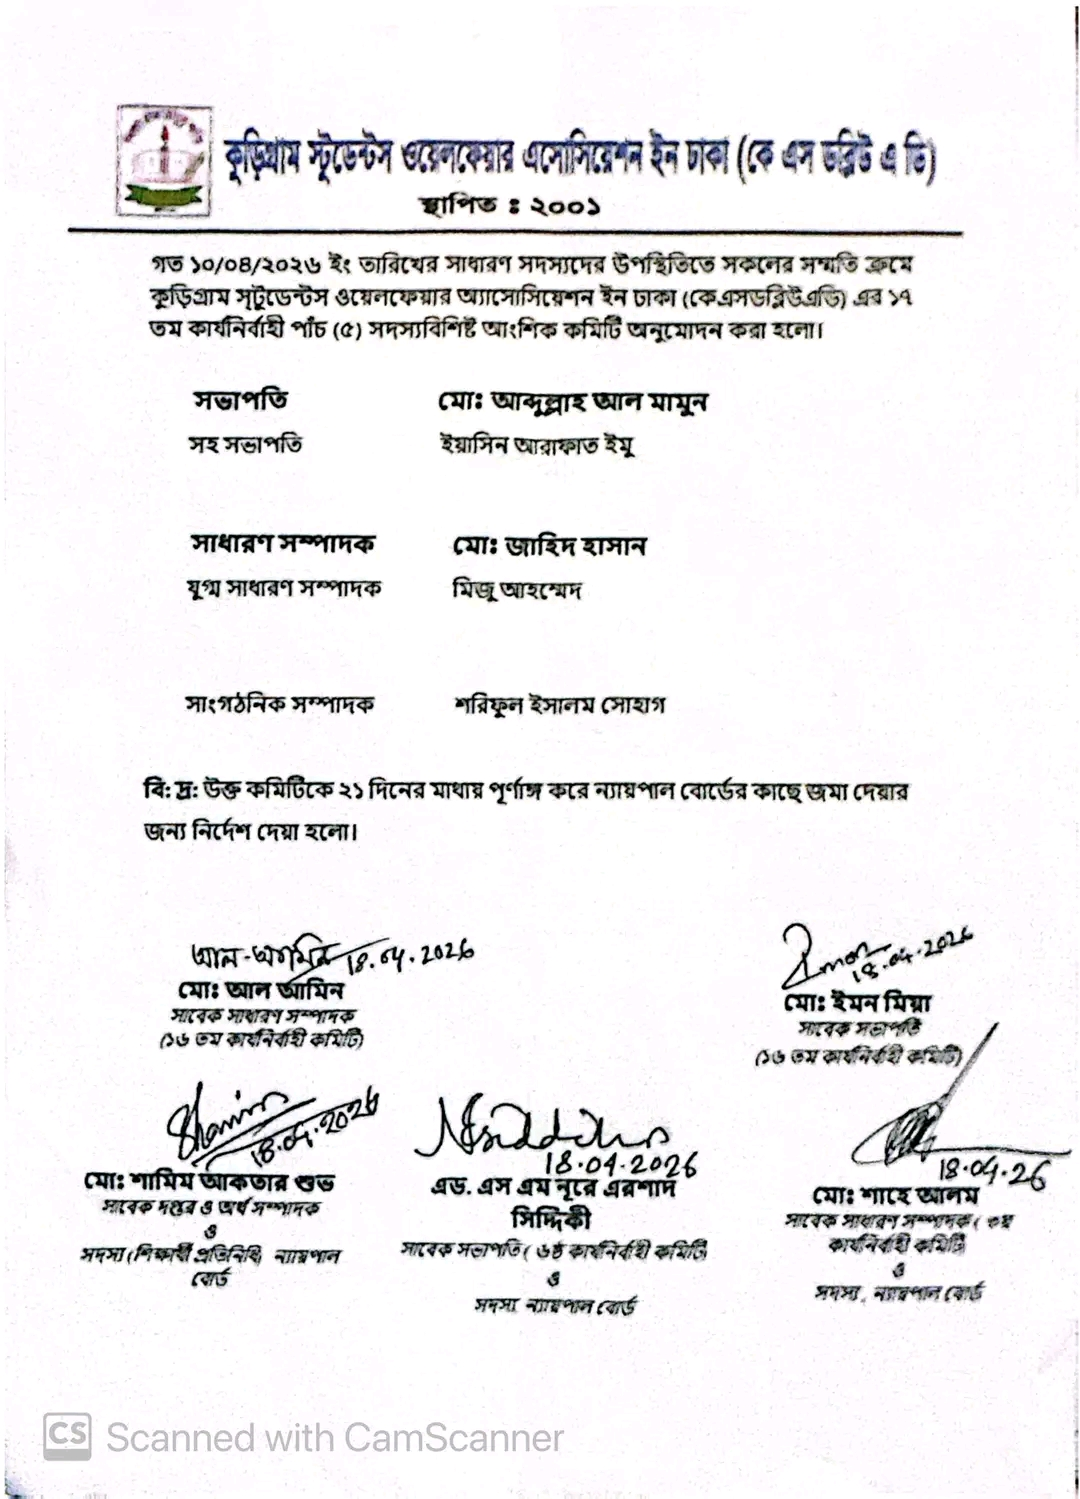 কুড়িগ্রাম স্টুডেন্টস ওয়েলফেয়ার এসোসিয়েশন ইন ঢাকা (কে এস ডব্লিউ এ ডি)
স্থাপিত : ২০০১
গত ১০/০৪/২০২৬ ইং তারিখের সাধারণ সদস্যদের উপস্থিতিতে সকলের সম্মতি ক্রমে
কুড়িগ্রাম স্টুডেন্টস ওয়েলফেয়ার অ্যাসোসিয়েশন ইন ঢাকা (কেএসডব্লিউএডি) এর ১৭
তম কার্যনির্বাহী পাঁচ (৫) সদস্যবিশিষ্ট আংশিক কমিটি অনুমোদন করা হলো।
সভাপতি মো: আব্দুল্লাহ আল মামুন
সহ সভাপতি ইয়াসিন আরাফাত ইমু
সাধারণ সম্পাদক মো: জাহিদ হাসান
যুগ্ম সাধারণ সম্পাদক মিজু আহম্মেদ
সাংগঠনিক সম্পাদক শরিফুল ইসালম সোহাগ
বি: দ্র: উক্ত কমিটিকে ২১ দিনের মাধায় পূর্ণাঙ্গ করে ন্যায়পাল বোর্ডের কাছে জমা দেয়ার
জন্য নির্দেশ দেয়া হলো।
আল-আমিন 18.04.2026
মো: আল আমিন
সাবেক সাধারণ সম্পাদক
(১৬ তম কার্যনির্বাহী কমিটি)
Imon 18.04.2026
মো: ইমন মিয়া
সাবেক সভাপতি
(১৬ তম কার্যনির্বাহী কমিটি)
Shamim 18.04.2026
মো: শামিম আকতার শুভ
সাবেক দপ্তর ও অর্থ সম্পাদক
ও
সদস্য (শিক্ষার্থী প্রতিনিধি) ন্যায়পাল
বোর্ড
18.04.2026
এড. এস এম নূরে এরশাদ
সিদ্দিকী
সাবেক সভাপতি ( ৬ষ্ঠ কার্যনির্বাহী কমিটি)
ও
সদস্য, ন্যায়পাল বোর্ড
18.04.26
মো: শাহে আলম
সাবেক সাধারণ সম্পাদক (
কার্যনির্বাহী কমিটি)
ও
সদস্য, ন্যায়পাল বোর্ড
CS Scanned with CamScanner